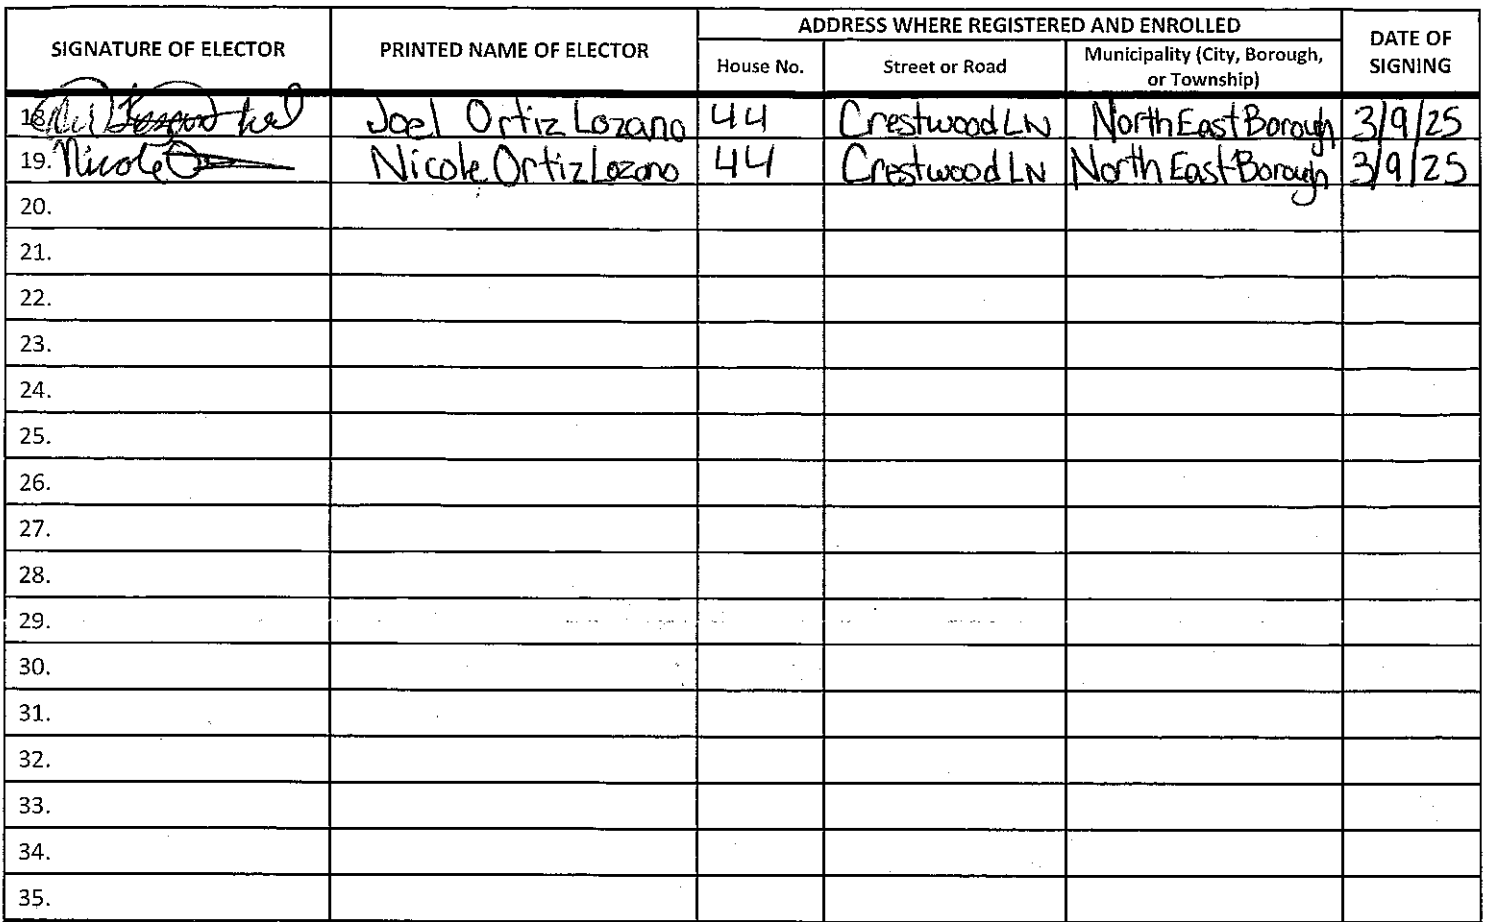 SIGNATURE OF ELECTOR PRINTED NAME OF ELECTOR ADDRESS WHERE REGISTERED AND ENROLLED DATE OF SIGNING
House No. Street or Road Municipality (City, Borough, or Township)
18. Joel Ortiz Lozano 44 Crestwood LN North East Borough 3/9/25
19. Nicole Nicole Ortiz Lozano 44 Crestwood LN North East Borough 3/9/25
20.
21.
22.
23.
24.
25.
26.
27.
28.
29.
30.
31.
32.
33.
34.
35.